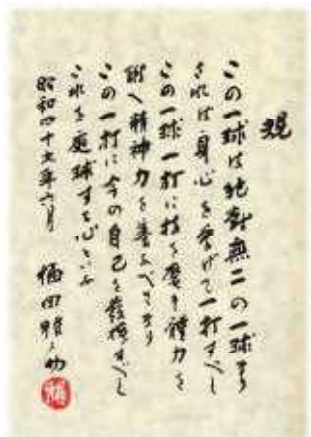 規
この一球は絶對無二の一球なり
されば身心を挙げて一打すべし
この一球一打に技を磨き體力を
鍛へ精神力を養ふべきなり
この一打に今の自己を發揮すべし
これを庭球する心といふ
昭和四十六年六月 福田雅之助